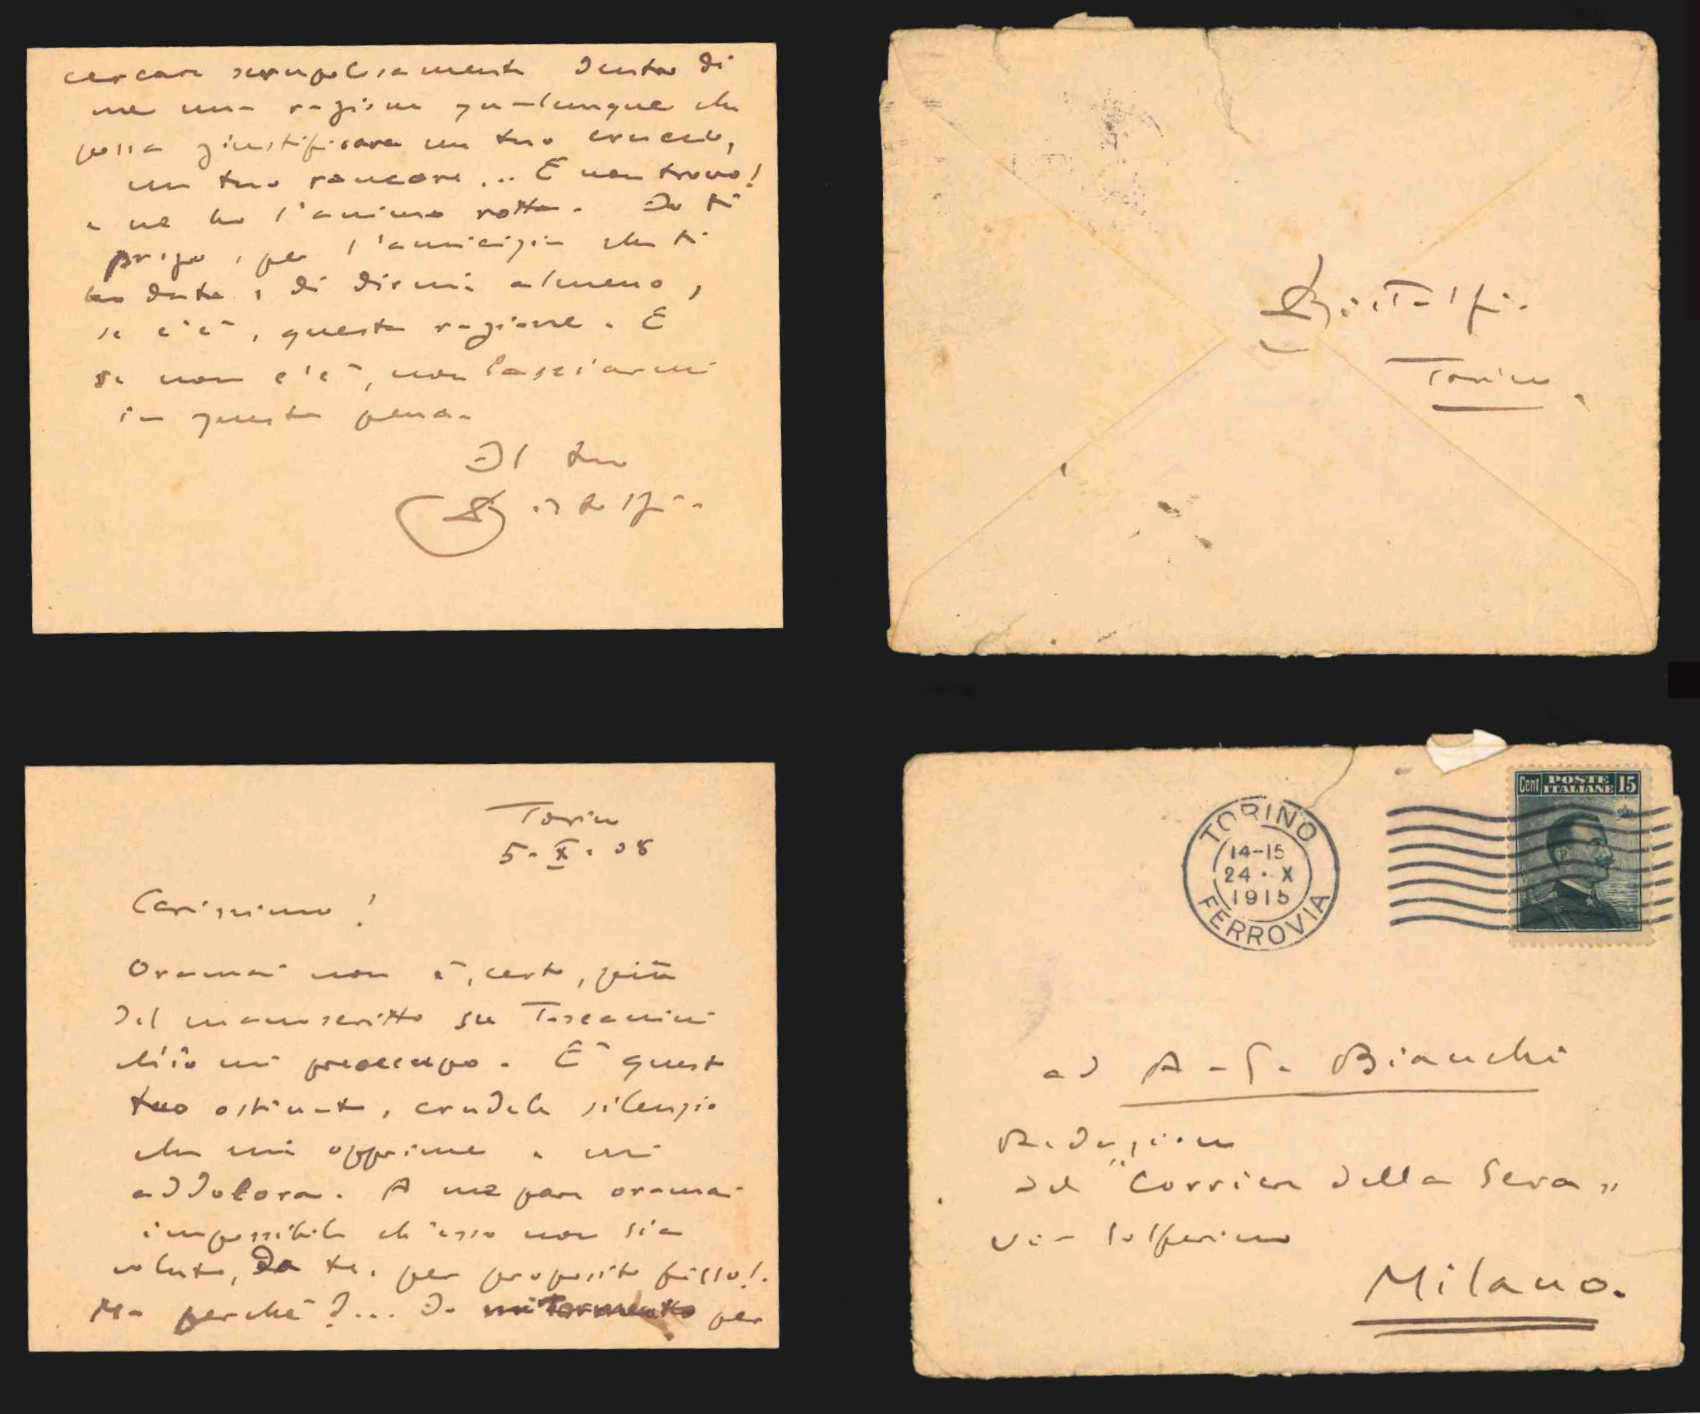 cercare scrupolosamente dentro di
me una ragione qualunque che
possa giustificare un tuo cruccio,
un tuo rancore... E non trovo!
e ne ho l'animo rotto. Io ti
prego, per l'amicizia che ti
ho dato, di dirmi almeno,
se c'è, questa ragione. E
se non c'è, non lasciarmi
in questa pena.
Il tuo
Bistolfi.
Bistolfi.
Torino.
Torino
5. X. 08
Carissimo!
Oramai non è, certo, più
del manoscritto su Toscanini
ch'io mi preoccupo. È questo
tuo ostinato, crudele silenzio
che mi opprime e mi
addolora. A me pare oramai
impossibile ch'esso non sia
voluto, da te, per proposito fisso!.
Ma perché?... Io mi tormento per
TORINO
14-15
24·X
1915
FERROVIA
Cent POSTE ITALIANE 15
ad A. G. Bianchi
Redazione
del "Corriere della Sera"
via Solferino
Milano.